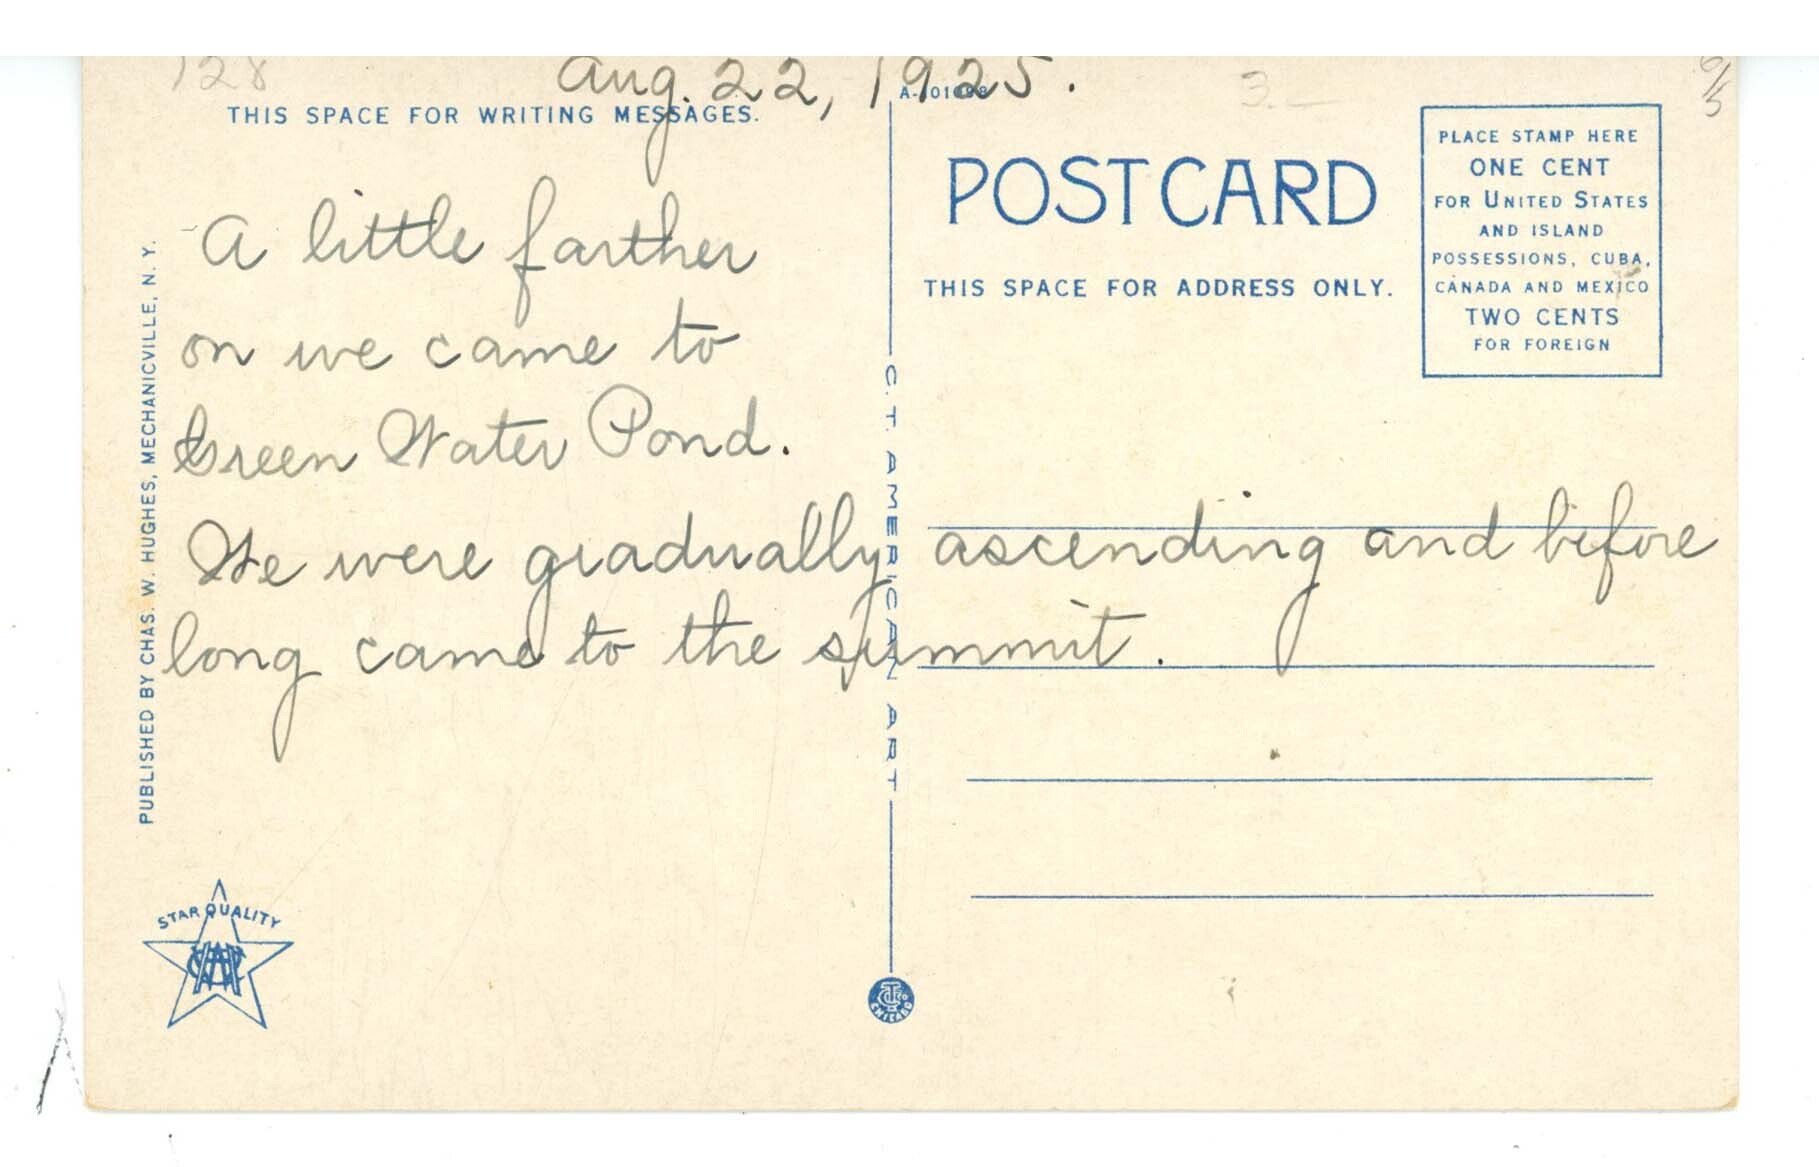 128
Aug. 22, 1925.
3.-
THIS SPACE FOR WRITING MESSAGES.
A little farther
on we came to
Green Water Pond.
We were gradually ascending and before
long came to the summit.
POST CARD
THIS SPACE FOR ADDRESS ONLY.
PLACE STAMP HERE
ONE CENT
FOR UNITED STATES
AND ISLAND
POSSESSIONS, CUBA,
CANADA AND MEXICO
TWO CENTS
FOR FOREIGN
PUBLISHED BY CHAS. W. HUGHES, MECHANICVILLE, N. Y.
C. T. AMERICAN ART
STAR QUALITY
CHICAGO